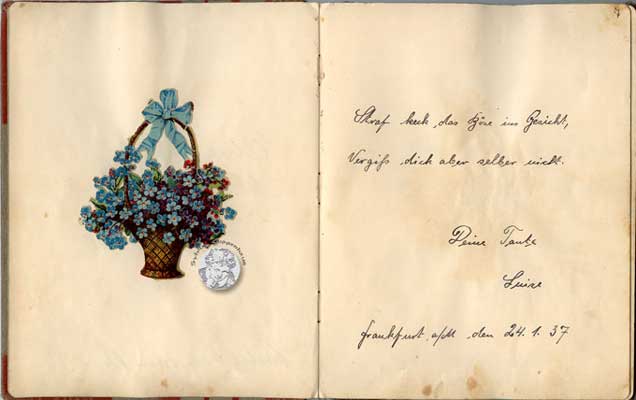 Straf keck das Böse ins Gesicht,
Vergiß dich aber selber nicht.
Deine Tante
Luise
Frankfurt a/M den 24.1.37